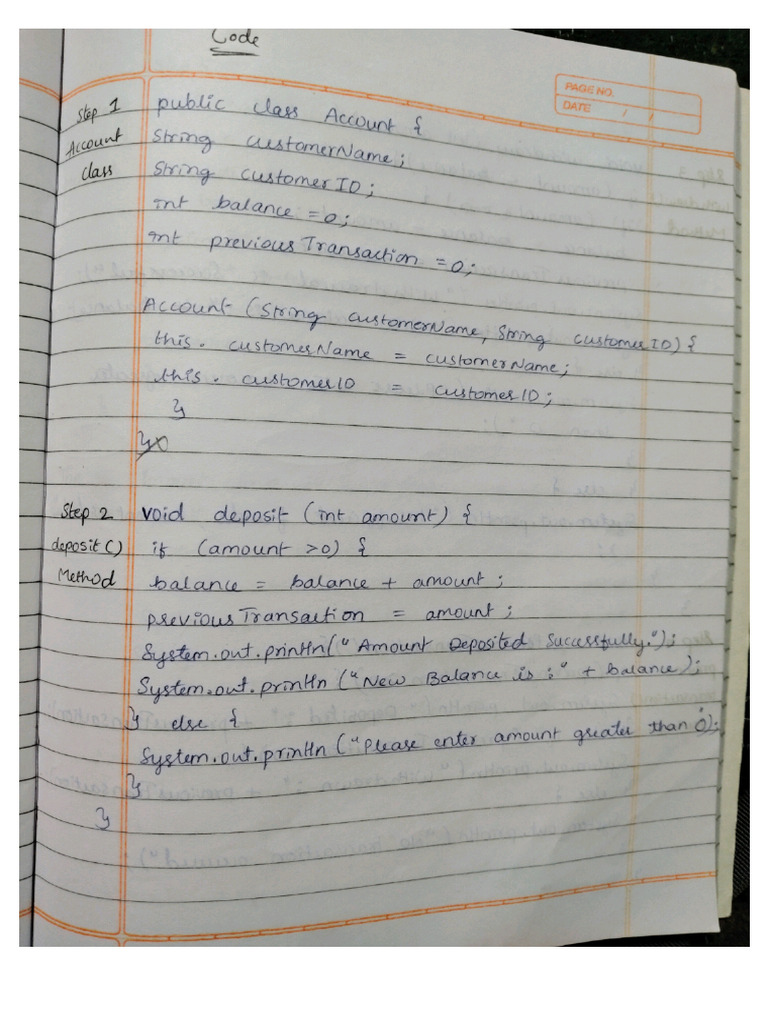 Code
PAGE NO.
DATE / /
Step 1 public class Account {
Account String customerName;
class String customerID;
int balance = 0;
int previousTransaction = 0;
Account (String customerName, String customerID) {
this. customerName = customerName;
this. customerID = customerID;
}
}
Step 2 void deposit (int amount) {
deposit() if (amount >0) {
Method balance = balance + amount;
previousTransaction = amount;
System.out.println("Amount Deposited Successfully.");
System.out.println ("New Balance is :" + balance);
} else {
System.out.println ("Please enter amount greater than 0);
}
}